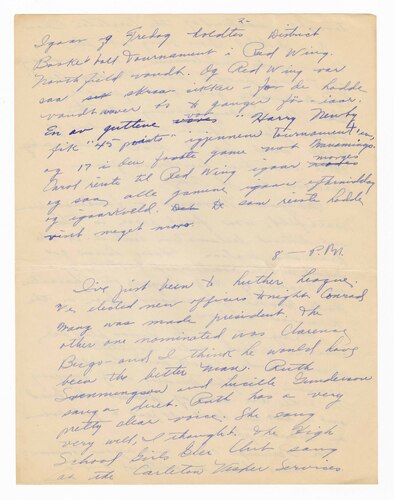 2-
Igaar og Fredag holdtes District
Basket ball Tournament i Red Wing.
Northfield vandt. Og Red Wing var
saa sikker - for de hadde
vandt over os to ganger för i aar.
En av guttene "Harry Newby"
fik "45 points" igjennem tournament'en,
og 17 i den första game mot
Carol reiste til Red Wing igaar
og saa alle gamene igaar eftermiddag
og igaarkveld. De som reiste hadde
visst meget moro.
8 - P.M.
I've just been to Luther League,
We elected new officers tonight. Conrad
was made president. The
other one nominated was Clarence
and I think he would have
been the better man. Ruth
and Lucille Gunderson
sang a duet. Ruth has a very
pretty clear voice. She sang
very well, I thought. The High
School Girls Glee Club sang
at the Carleton Vesper Services